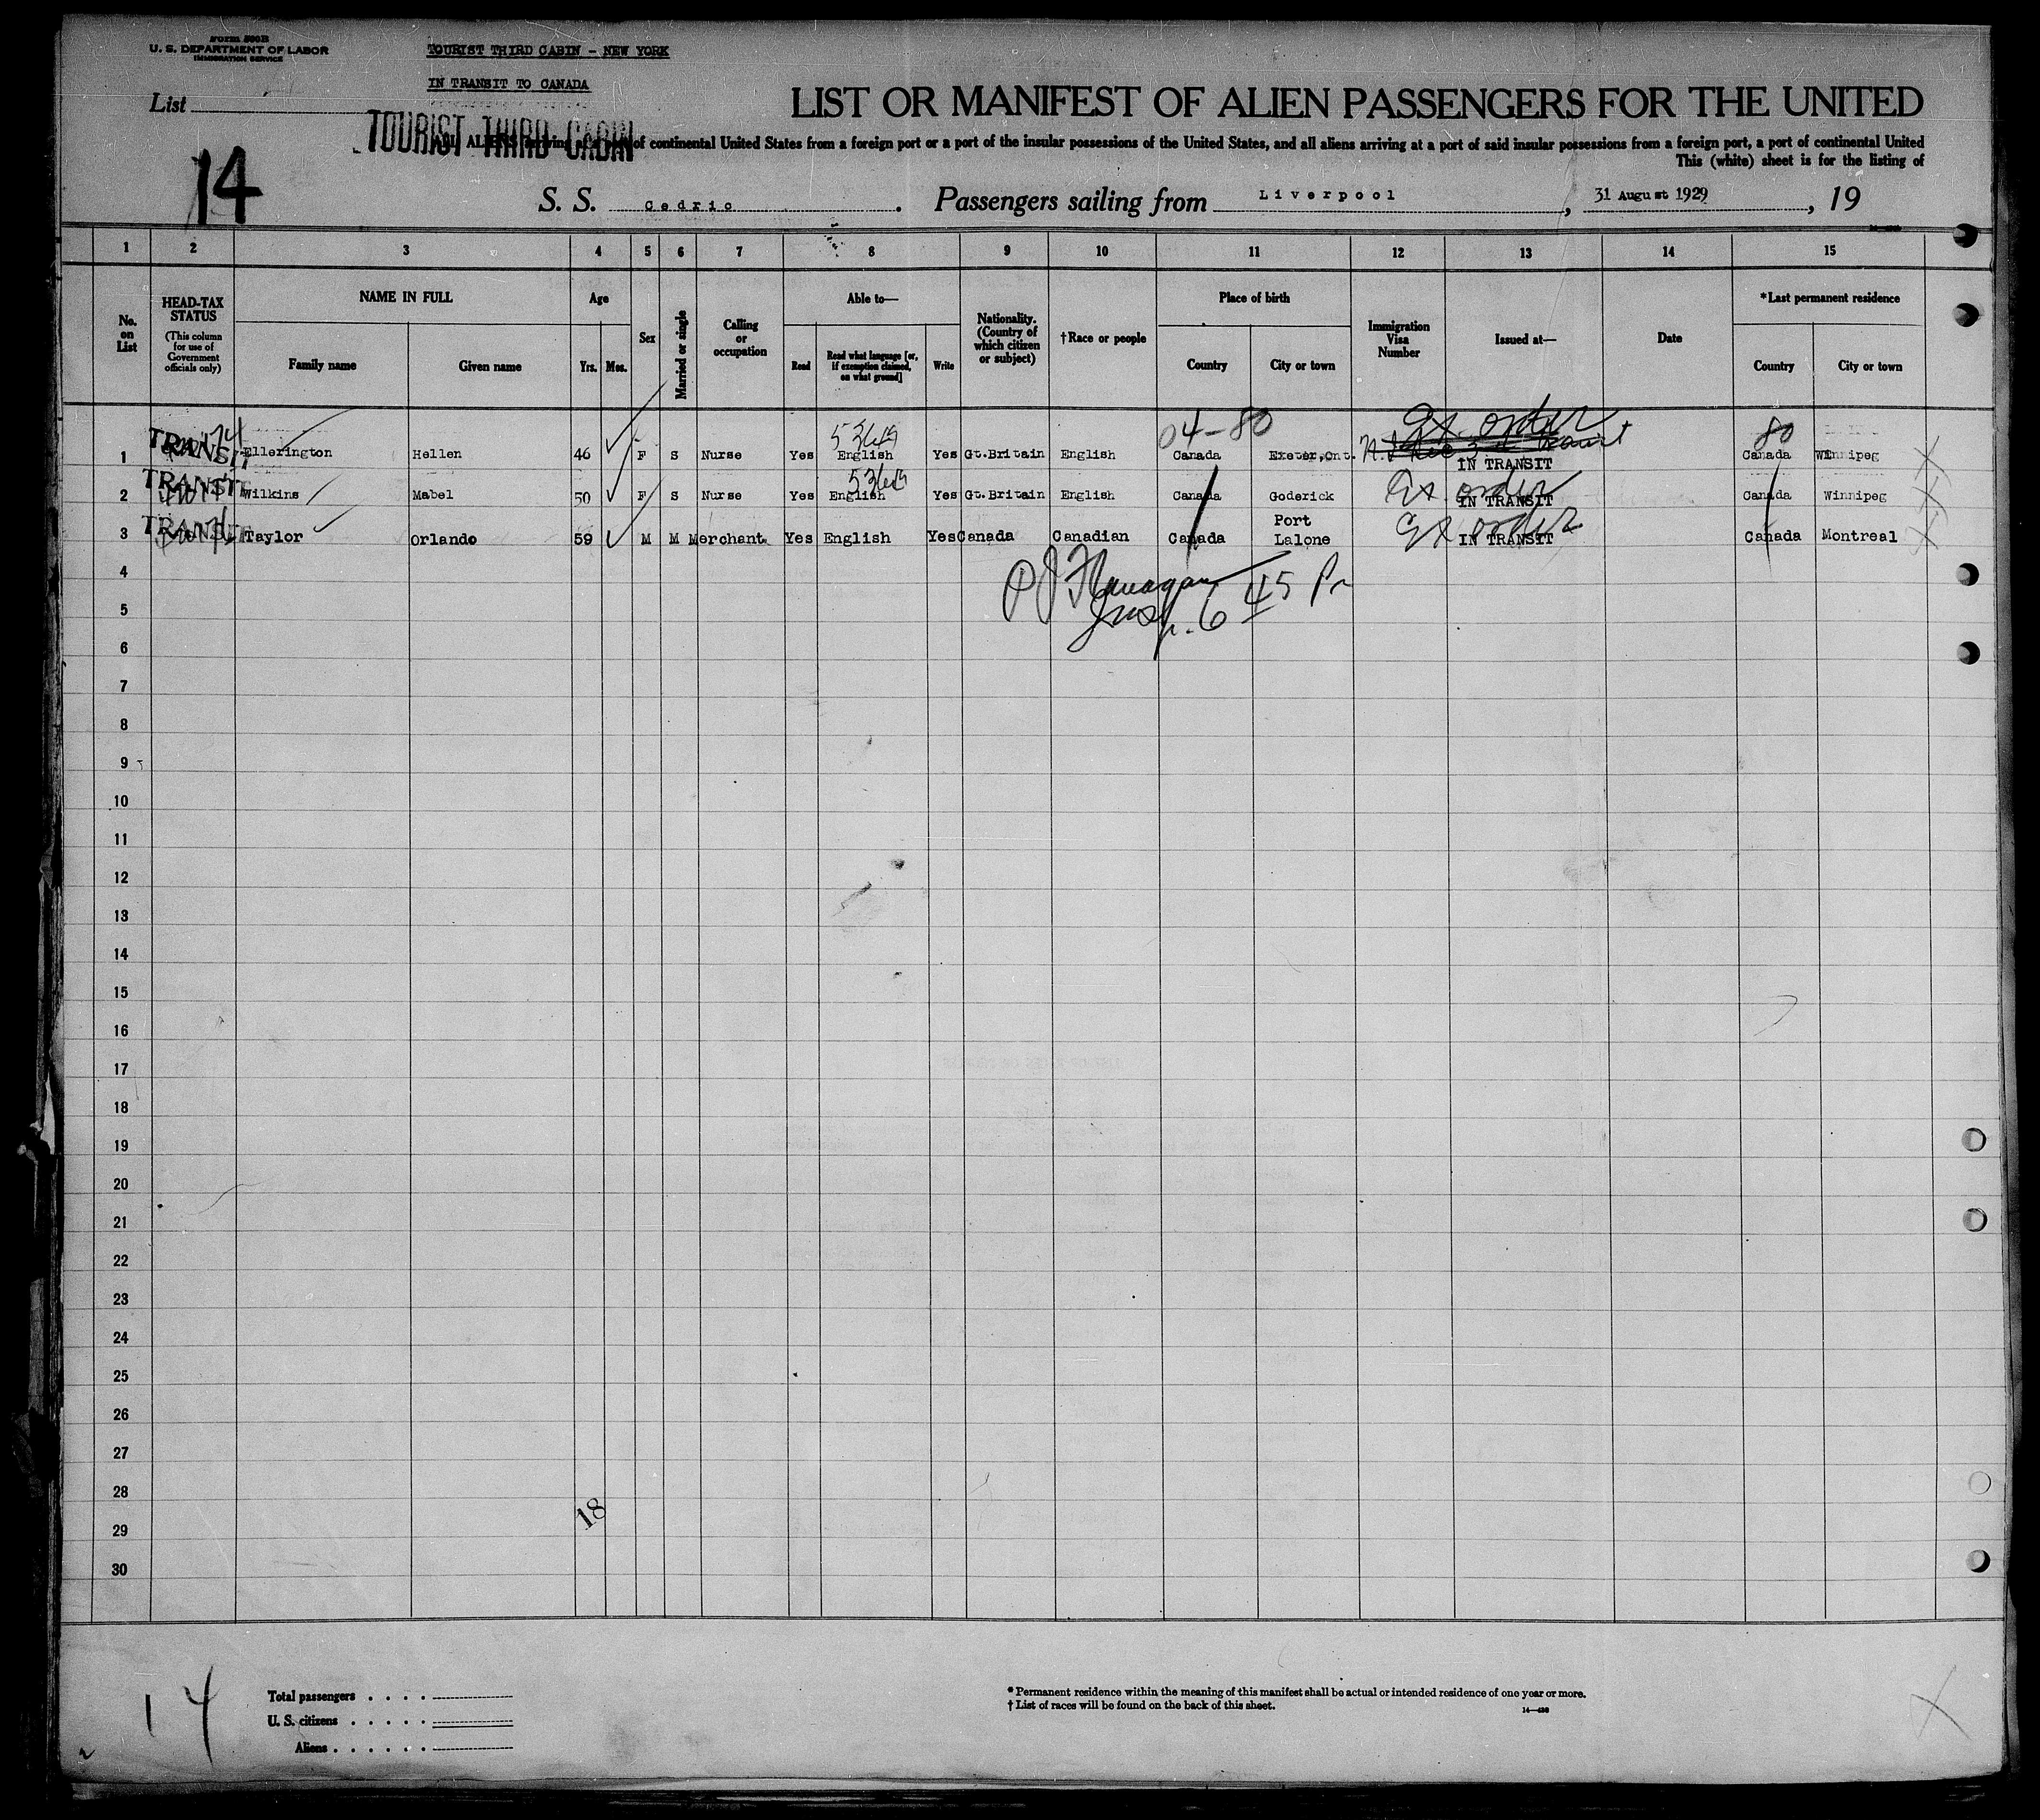 Form 500B
U. S. DEPARTMENT OF LABOR
IMMIGRATION SERVICE
TOURIST THIRD CABIN - NEW YORK
IN TRANSIT TO CANADA
List
LIST OR MANIFEST OF ALIEN PASSENGERS FOR THE UNITED
TOURIST THIRD CABIN
ALL ALIENS arriving at a port of continental United States from a foreign port or a port of the insular possessions of the United States, and all aliens arriving at a port of said insular possessions from a foreign port, a port of continental United
This (white) sheet is for the listing of
14
S. S. Cedric. Passengers sailing from Liverpool, 31 August 1929, 19
1 2 3 4 5 6 7 8 9 10 11 12 13 14 15
No. on List
HEAD-TAX STATUS
(This column for use of Government officials only)
NAME IN FULL
Family name Given name
Age
Yrs. Mos.
Sex
Married or single
Calling or occupation
Able to—
Read Read what language [or, if exemption claimed, on what ground] Write
Nationality. (Country of which citizen or subject)
†Race or people
Place of birth
Country City or town
Immigration Visa Number
Issued at—
Date
*Last permanent residence
Country City or town
04-80 Ex. order 80
1 TRANSIT Ellerington Hellen 46 F S Nurse Yes English Yes Gt.Britain English Canada Exeter,Ont. IN TRANSIT Canada Winnipeg
2 TRANSIT Wilkins Mabel 50 F S Nurse Yes English Yes Gt.Britain English Canada Goderick Ex. order IN TRANSIT Canada Winnipeg
3 TRANSIT Taylor Orlando 59 M M Merchant Yes English Yes Canada Canadian Canada Port Lalone Ex order IN TRANSIT Canada Montreal
4
P J Flanagan 645 Pm
5
Insp.
6
7
8
9
10
11
12
13
14
15
16
17
18
19
20
21
22
23
24
25
26
27
28
18
29
30
14
Total passengers . . . .
U. S. citizens . . . . .
Aliens . . . . . .
* Permanent residence within the meaning of this manifest shall be actual or intended residence of one year or more.
† List of races will be found on the back of this sheet.